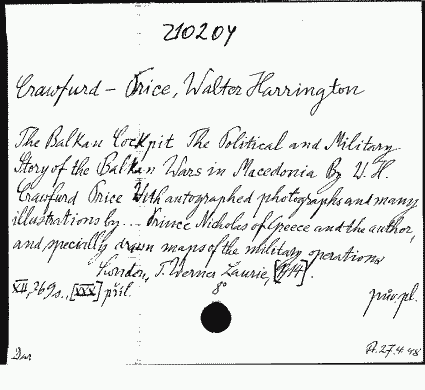 210204
Crawfurd - Price, Walter Harrington
The Balkan Cockpit The Political and Military
Story of the Balkan Wars in Macedonia By W. H.
Crawfurd Price With autographed photographs and many
illustrations by ... Prince Nicholas of Greece and the author,
and specially drawn maps of the military operations
London, T. Werner Laurie, [1914].
XII, 269 s., [XXX] příl.
8°
pův. pl.
Dar
A. 27.4.48